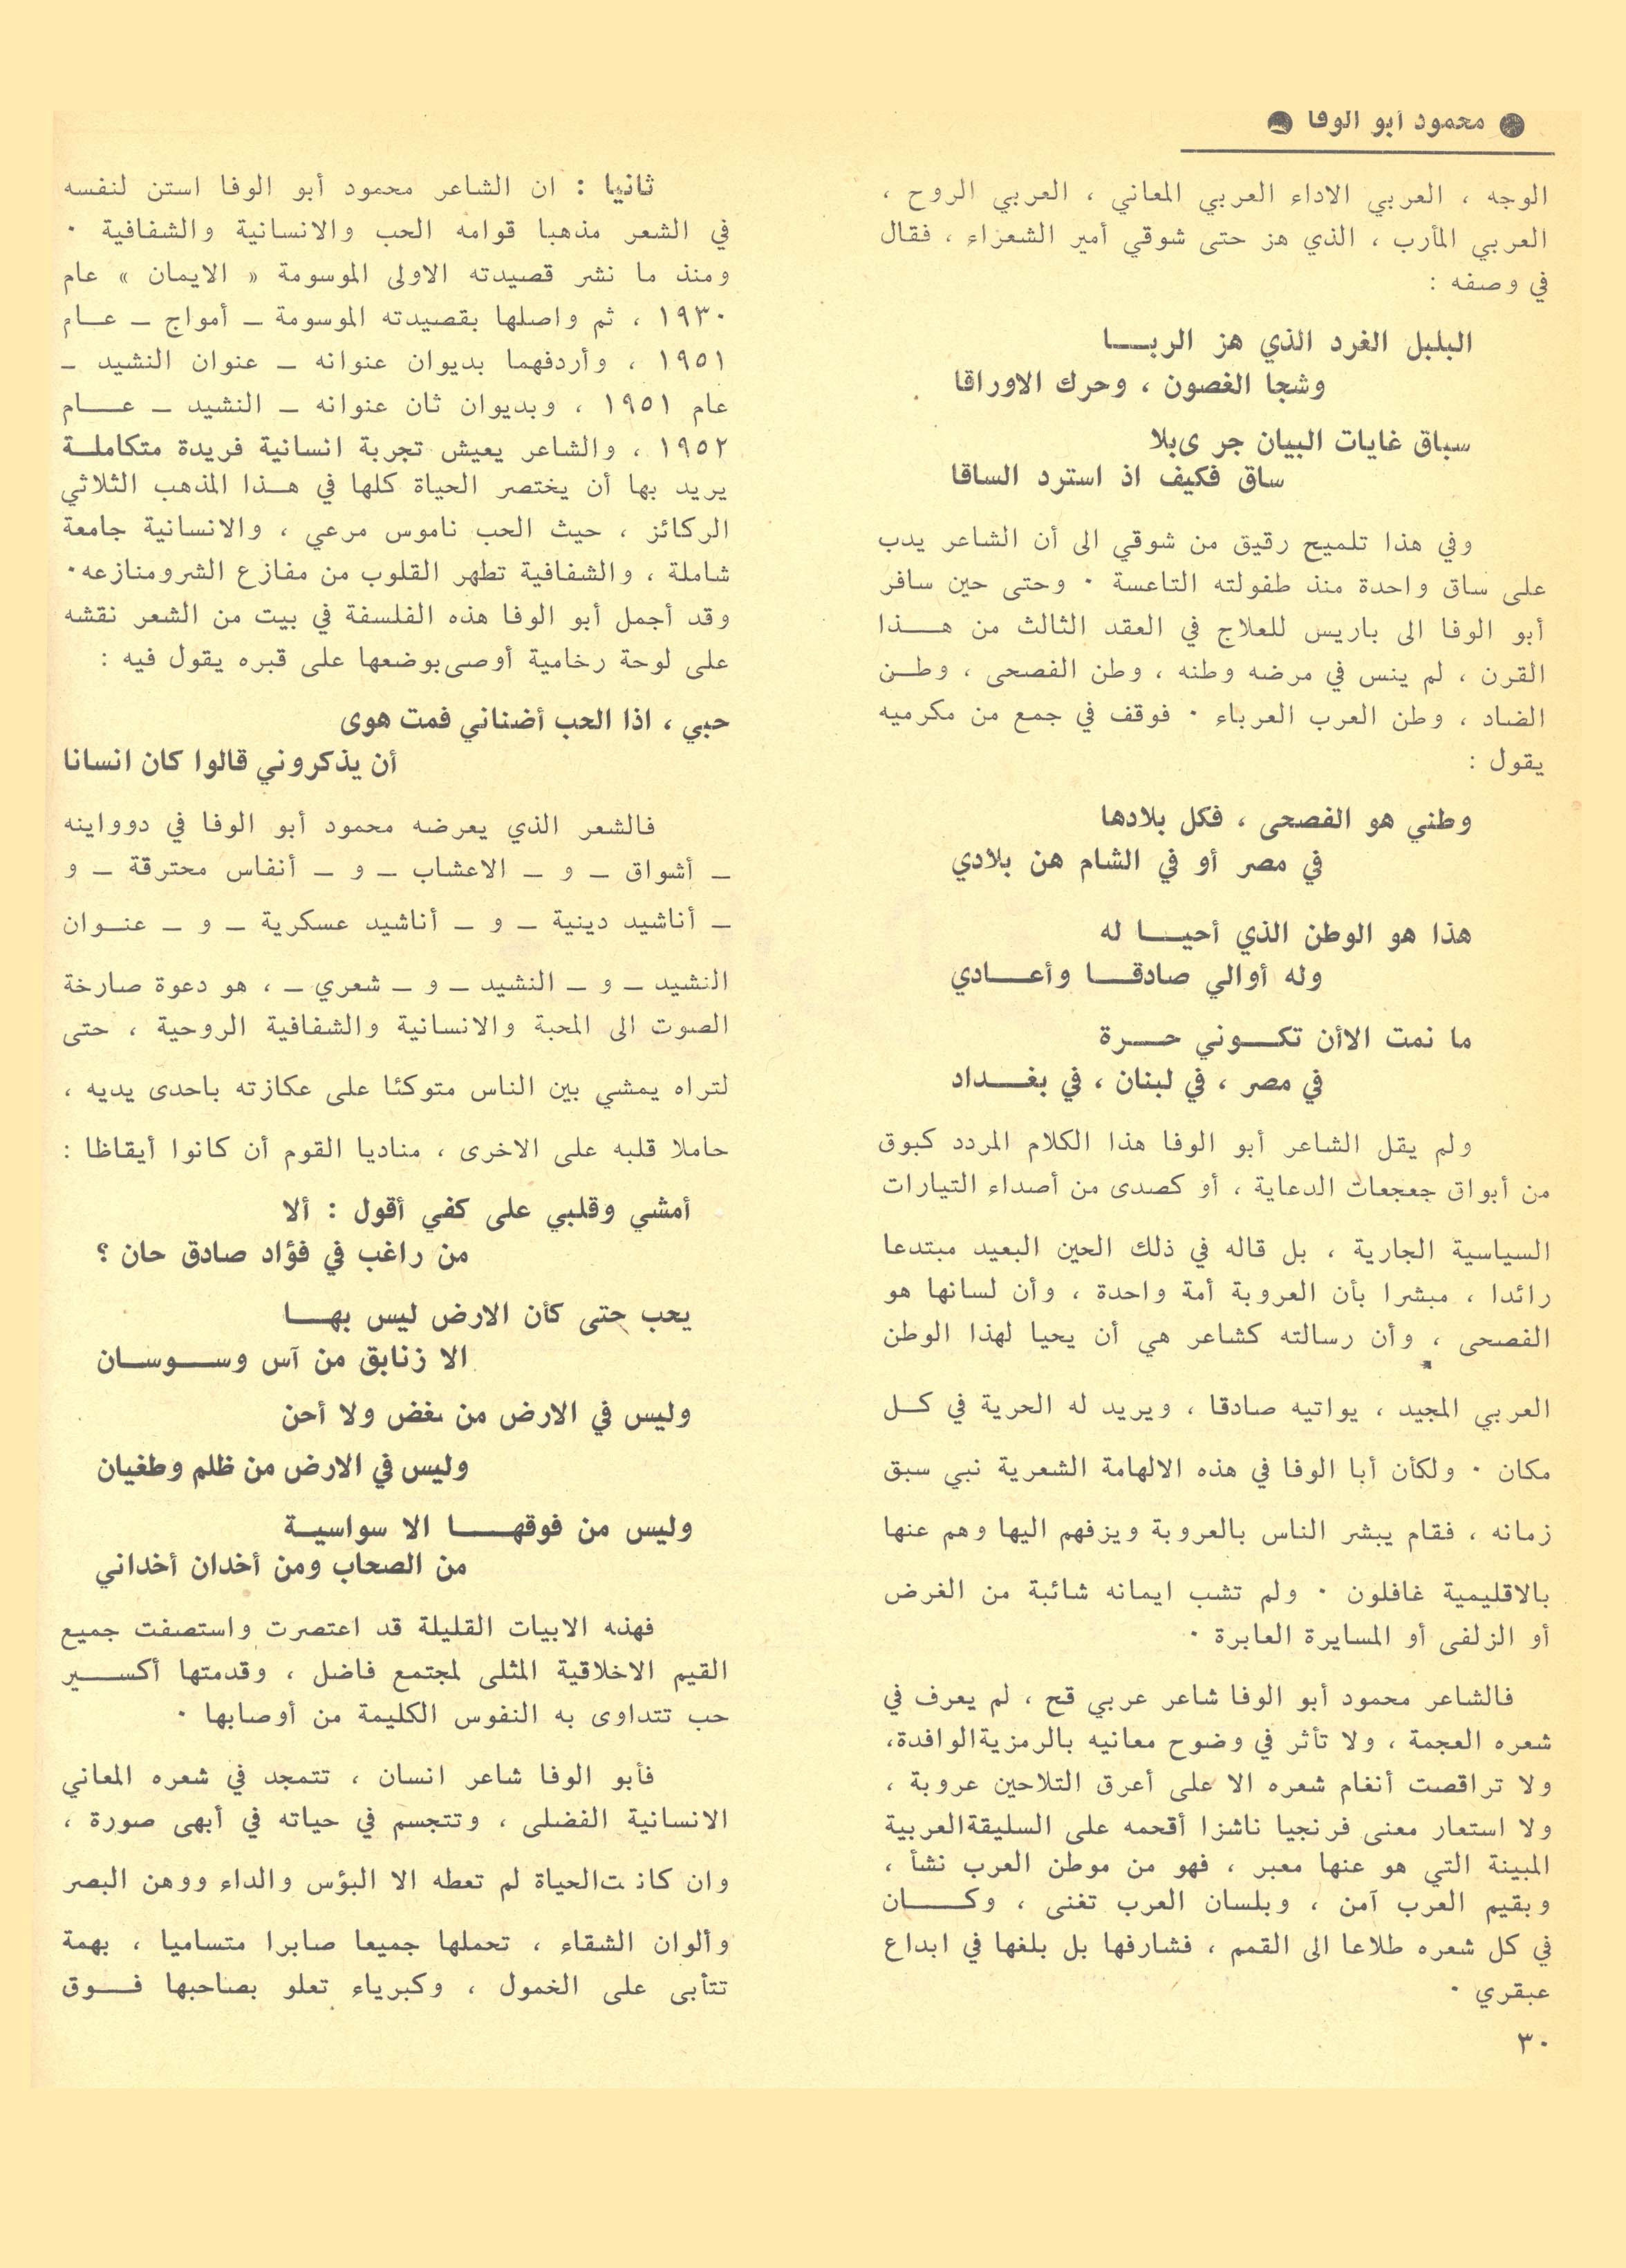 ● محمود أبو الوفا ●
الوجه ، العربي الاداء العربي المعاني ، العربي الروح ،
العربي المأرب ، الذي هز حتى شوقي أمير الشعراء ، فقال
في وصفه :
البلبل الغرد الذي هز الربــا
وشجا الغصون ، وحرك الاوراقا
سباق غايات البيان جر ىبلا
ساق فكيف اذ استرد الساقا
وفي هذا تلميح رقيق من شوقي الى أن الشاعر يدب
على ساق واحدة منذ طفولته التاعسة ٠ وحتى حين سافر
أبو الوفا الى باريس للعلاج في العقد الثالث من هــذا
القرن ، لم ينس في مرضه وطنه ، وطن الفصحى ، وطــن
الضاد ، وطن العرب العرباء ٠ فوقف في جمع من مكرميه
يقول :
وطني هو الفصحى ، فكل بلادها
في مصر أو في الشام هن بلادي
هذا هو الوطن الذي أحيــا له
وله أوالي صادقــا وأعــادي
ما نمت الاأن تكــوني حــرة
في مصر ، في لبنان ، في بغــداد
ولم يقل الشاعر أبو الوفا هذا الكلام المردد كبوق
من أبواق جعجعات الدعاية ، أو كصدى من أصداء التيارات
السياسية الجارية ، بل قاله في ذلك الحين البعيد مبتدعا
رائدا ، مبشرا بأن العروبة أمة واحدة ، وأن لسانها هو
الفصحى ، وأن رسالته كشاعر هي أن يحيا لهذا الوطن
العربي المجيد ، يواتيه صادقا ، ويريد له الحرية في كــل
مكان ٠ ولكأن أبا الوفا في هذه الالهامة الشعرية نبي سبق
زمانه ، فقام يبشر الناس بالعروبة ويزفهم اليها وهم عنها
بالاقليمية غافلون ٠ ولم تشب ايمانه شائبة من الغرض
أو الزلفى أو المسايرة العابرة ٠
فالشاعر محمود أبو الوفا شاعر عربي قح ، لم يعرف في
شعره العجمة ، ولا تأثر في وضوح معانيه بالرمزيةالوافدة،
ولا تراقصت أنغام شعره الا على أعرق التلاحين عروبة ،
ولا استعار معنى فرنجيا ناشزا أقحمه على السليقةالعربية
المبينة التي هو عنها معبر ، فهو من موطن العرب نشأ ،
وبقيم العرب آمن ، وبلسان العرب تغنى ، وكــان
في كل شعره طلاعا الى القمم ، فشارفها بل بلغها في ابداع
عبقري ٠
٣٠
ثانيا : ان الشاعر محمود أبو الوفا استن لنفسه
في الشعر مذهبا قوامه الحب والانسانية والشفافية ٠
ومنذ ما نشر قصيدته الاولى الموسومة « الايمان » عام
١٩٣٠ ، ثم واصلها بقصيدته الموسومة ــ أمواج ــ عــام
١٩٥١ ، وأردفهما بديوان عنوانه ــ عنوان النشيد ــ
عام ١٩٥١ ، وبديوان ثان عنوانه ــ النشيد ــ عــام
١٩٥٢ ، والشاعر يعيش تجربة انسانية فريدة متكاملــة
يريد بها أن يختصر الحياة كلها في هــذا المذهب الثلاثي
الركائز ، حيث الحب ناموس مرعي ، والانسانية جامعة
شاملة ، والشفافية تطهر القلوب من مفازع الشرومنازعه٠
وقد أجمل أبو الوفا هذه الفلسفة في بيت من الشعر نقشه
على لوحة رخامية أوصىبوضعها على قبره يقول فيه :
حبي ، اذا الحب أضناني فمت هوى
أن يذكروني قالوا كان انسانا
فالشعر الذي يعرضه محمود أبو الوفا في دوواينه
ــ أشواق ــ و ــ الاعشاب ــ و ــ أنفاس محترقة ــ و
ــ أناشيد دينية ــ و ــ أناشيد عسكرية ــ و ــ عنــوان
النشيد ــ و ــ النشيد ــ و ــ شعري ــ ، هو دعوة صارخة
الصوت الى المحبة والانسانية والشفافية الروحية ، حتى
لتراه يمشي بين الناس متوكئا على عكازته باحدى يديه ،
حاملا قلبه على الاخرى ، مناديا القوم أن كانوا أيقاظا :
أمشي وقلبي على كفي أقول : ألا
من راغب في فؤاد صادق حان ؟
يحب حتى كأن الارض ليس بهــا
الا زنابق من آس وســوســان
وليس في الارض من بغض ولا أحن
وليس في الارض من ظلم وطغيان
وليس من فوقهــا الا سواسيــة
من الصحاب ومن أخدان أخداني
فهذه الابيات القليلة قد اعتصرت واستصفت جميع
القيم الاخلاقية المثلى لمجتمع فاضل ، وقدمتها أكســير
حب تتداوى به النفوس الكليمة من أوصابها ٠
فأبو الوفا شاعر انسان ، تتمجد في شعره المعاني
الانسانية الفضلى ، وتتجسم في حياته في أبهى صورة ،
وان كانتالحياة لم تعطه الا البؤس والداء ووهن البصر
وألوان الشقاء ، تحملها جميعا صابرا متساميا ، بهمة
تتأبى على الخمول ، وكبرياء تعلو بصاحبها فــوق